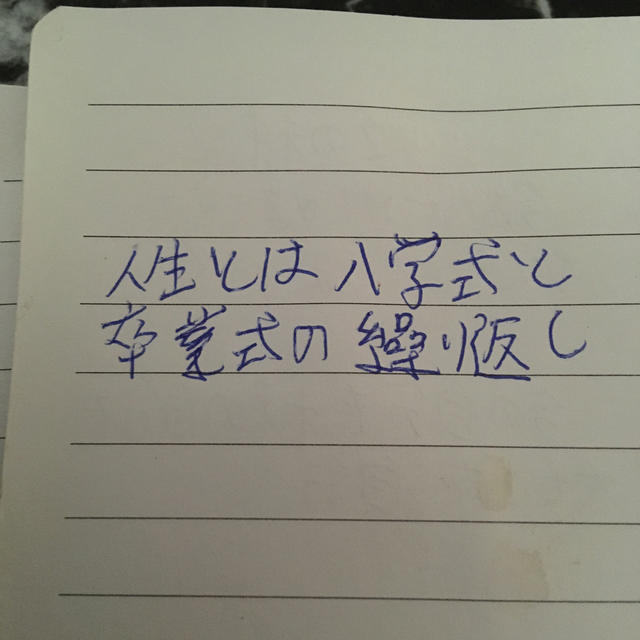 人生とは入学式と
卒業式の繰り返し